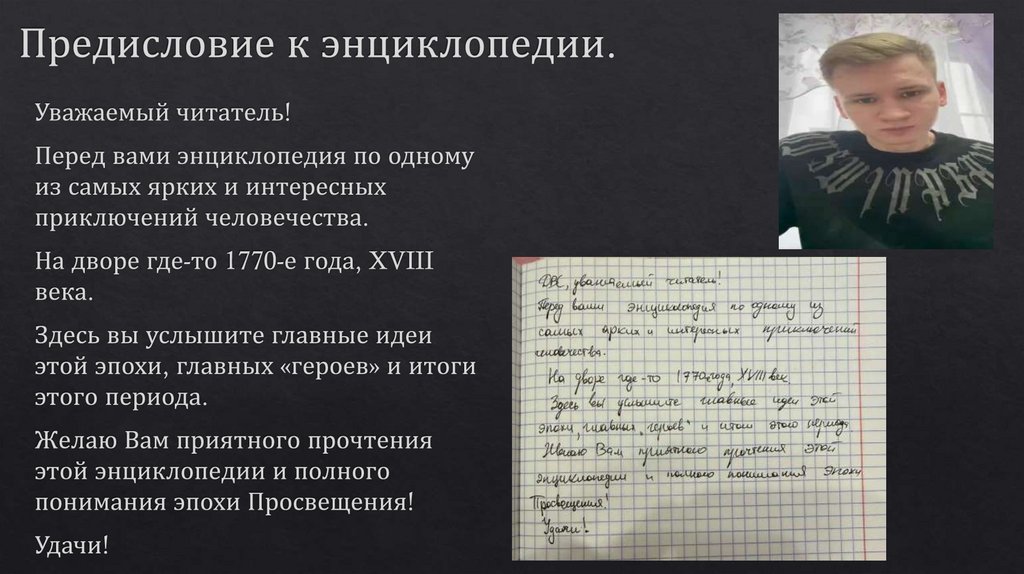 Предисловие к энциклопедии.
Уважаемый читатель!
Перед вами энциклопедия по одному
из самых ярких и интересных
приключений человечества.
На дворе где-то 1770-е года, XVIII
века.
Здесь вы услышите главные идеи
этой эпохи, главных «героев» и итоги
этого периода.
Желаю Вам приятного прочтения
этой энциклопедии и полного
понимания эпохи Просвещения!
Удачи!
уважаемый читатель!
Перед вами энциклопедия по одному из
самых ярких и интересных приключений
человечества.
На дворе где-то 1770 года, XVIII век
Здесь вы услышите главные идеи этой
эпохи, главных „героев" и итоги этого периода
Желаю Вам приятного прочтения этой
энциклопедии и полного понимания эпохи
Просвещения!
Удачи!